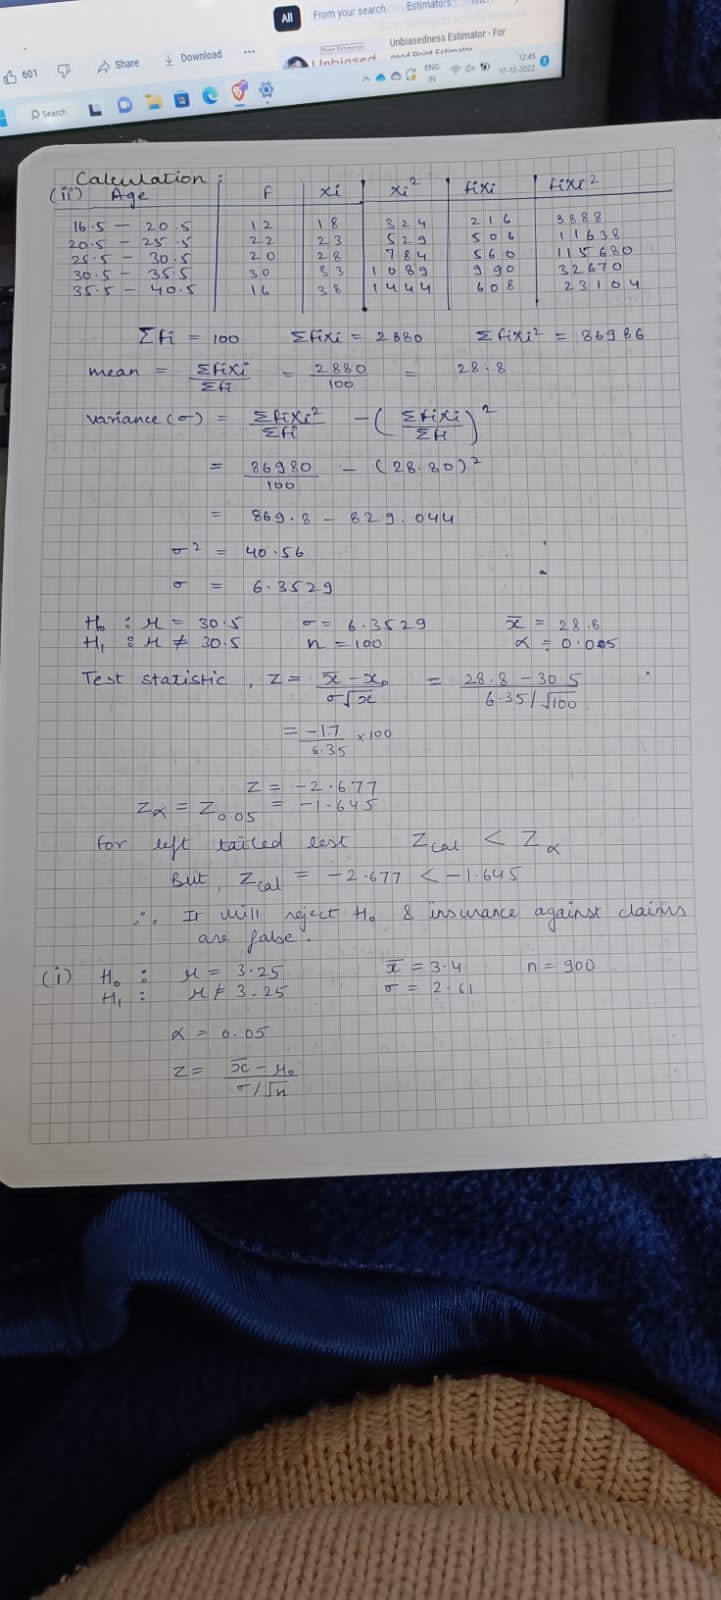 All
From your search
Estimators
601
Share
Download
...
Unbiasedness Estimator - For
Search
ENG
IN
12:45
Calculation :
(ii) Age f xi xi² fixi fixi²
16.5 - 20.5 12 18 324 216 3888
20.5 - 25.5 22 23 529 506 11638
25.5 - 30.5 20 28 784 560 115680
30.5 - 355 30 33 1089 990 32670
35.5 - 40.5 16 38 1444 608 23104
Σfi = 100 Σfixi = 2880 Σfixi² = 86986
mean = Σfixi / Σfi = 2880 / 100 = 28.8
variance (σ) = Σfixi² / Σfi - (Σfixi / Σfi)²
= 86980 / 100 - (28.80)²
= 869.8 - 829.044
σ² = 40.56
σ = 6.3529
H₀ : μ = 30.5 σ = 6.3529 x̄ = 28.8
H₁ : μ ≠ 30.5 n = 100 α = 0.005
Test statistic, Z = x̄ - x₀ / σ√x = 28.8 - 30.5 / 6.35/√100
= -1.7 / 6.35 × 100
Z = -2.677
Zα = Z0.05 = -1.645
For left tailed test Zcal < Zα
But, Zcal = -2.677 < -1.645
∴ It will reject H₀ & insurance against claims
are false.
(i) H₀ : μ = 3.25 x̄ = 3.4 n = 900
H₁ : μ ≠ 3.25 σ = 2.61
α = 0.05
Z = x̄ - μ₀ / σ/√n